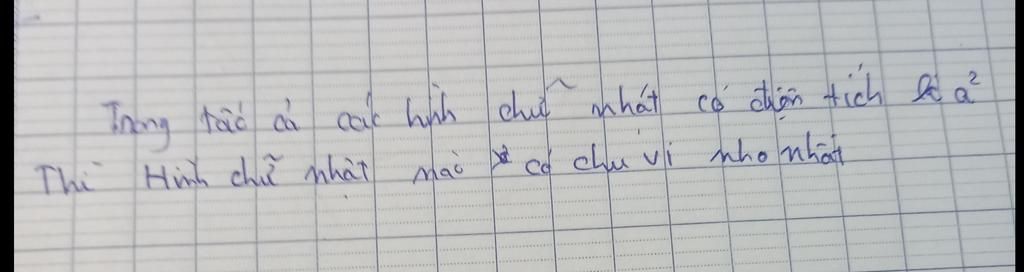 Trong tấc cả các hình chữ nhất có diện tích là a²
Thì Hình chữ nhật nào có chu vi nhỏ nhất